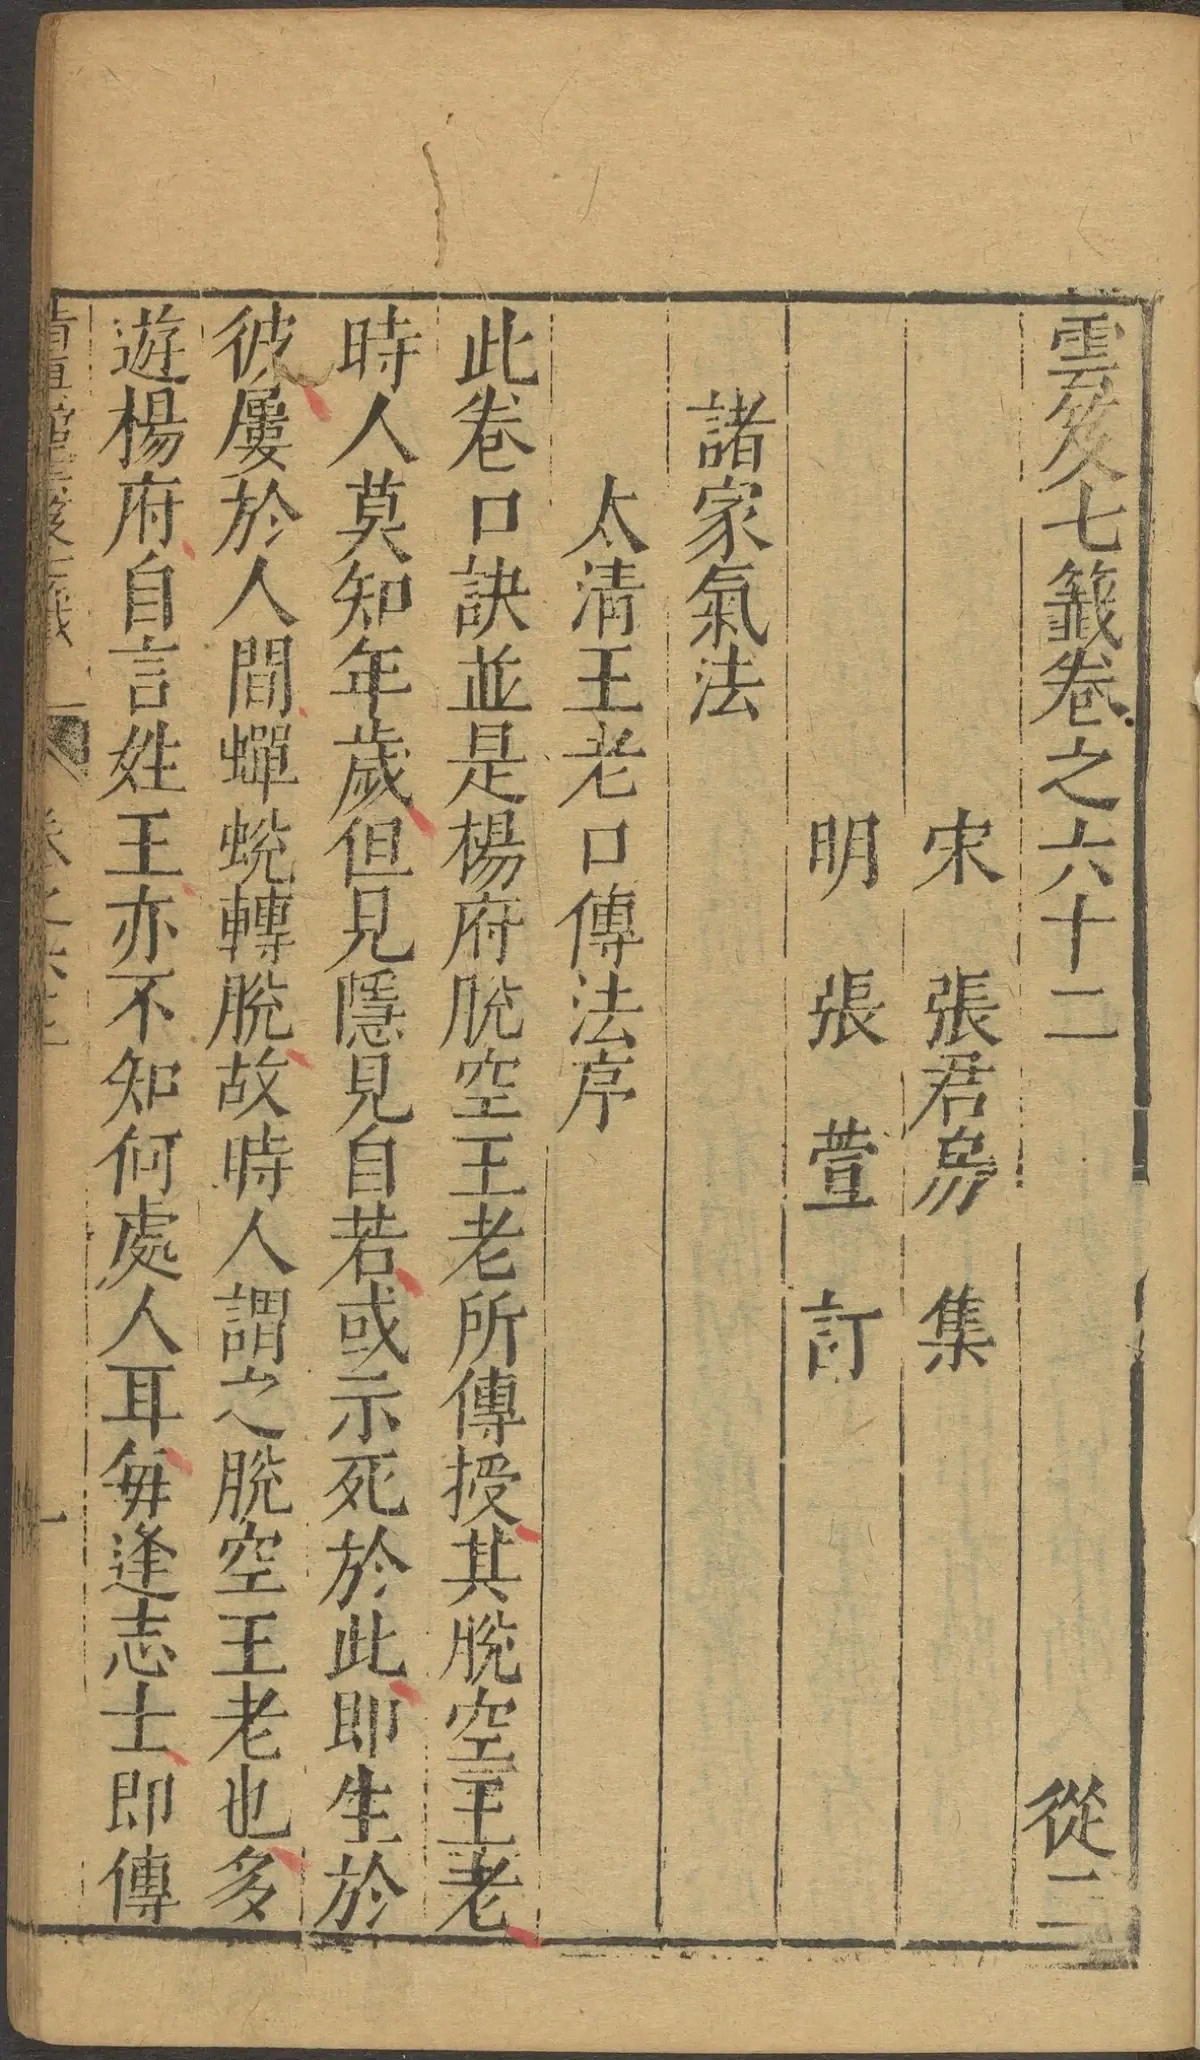 雲笈七籤卷之六十二 從二
宋 張君房 集
明 張萱 訂
諸家氣法
太清王老口傳法序
此卷口訣並是楊府脫空王老所傳授其脫空王老
時人莫知年歲但見隱見自若或示死於此即生於
彼屢於人間蟬蛻轉脫故時人謂之脫空王老也多
遊楊府自言姓王亦不知何處人耳每逢志士即傳
卷之六十二 一